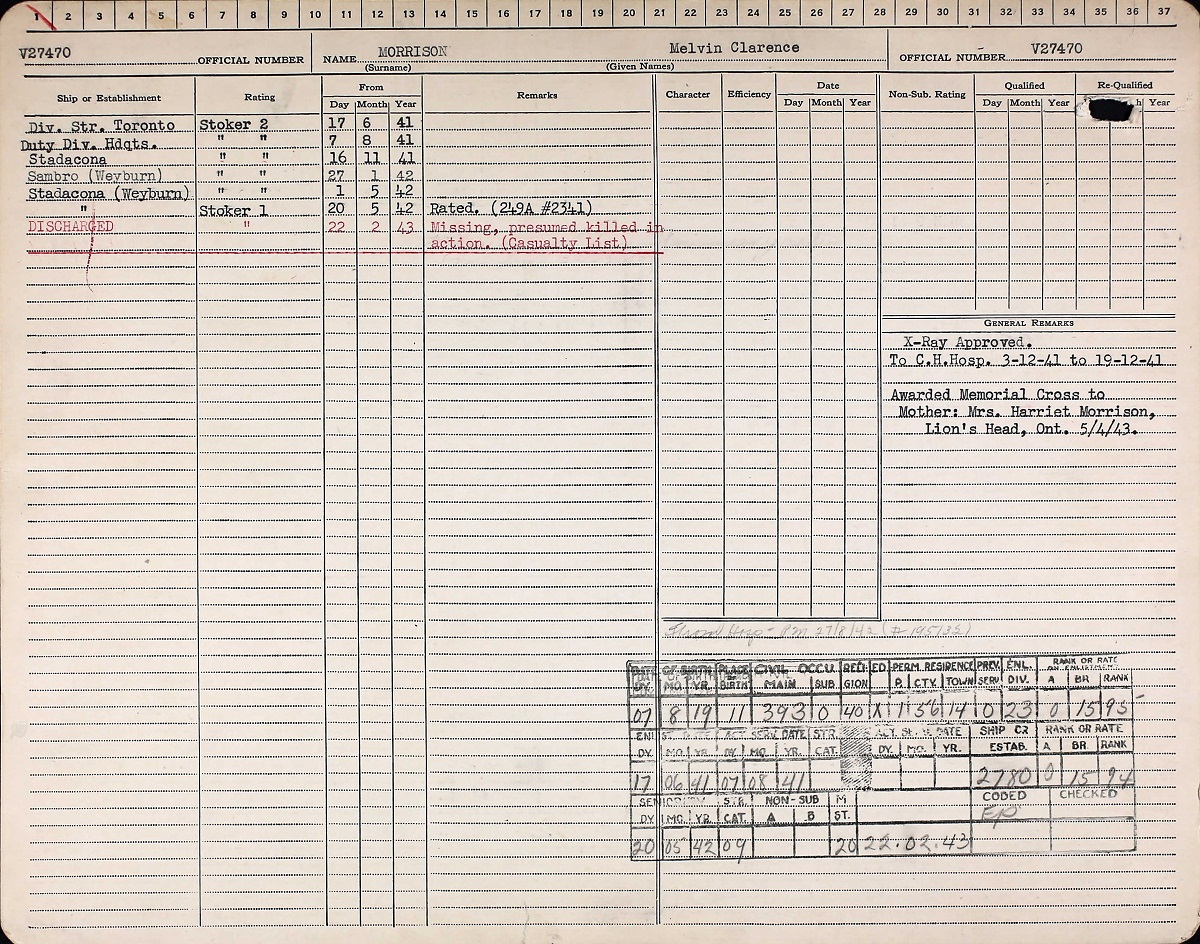 1 2 3 4 5 6 7 8 9 10 11 12 13 14 15 16 17 18 19 20 21 22 23 24 25 26 27 28 29 30 31 32 33 34 35 36 37
V27470 OFFICIAL NUMBER NAME MORRISON Melvin Clarence OFFICIAL NUMBER V27470
(Surname) (Given Names)
Ship or Establishment Rating From Remarks Character Efficiency Date Non-Sub. Rating Qualified Re-Qualified
Day Month Year Day Month Year Day Month Year h Year
Div. Str. Toronto Stoker 2 17 6 41
Duty Div. Hdqts. " " 7 8 41
Stadacona " " 16 11 41
Sambro (Weyburn) " " 27 1 42
Stadacona (Weyburn) " " 1 5 42
" Stoker 1 20 5 42 Rated. (249A #2341)
DISCHARGED " 22 2 43 Missing, presumed killed in
action. (Casualty List)
GENERAL REMARKS
X-Ray Approved.
To C.H.Hosp. 3-12-41 to 19-12-41
Awarded Memorial Cross to
Mother: Mrs. Harriet Morrison,
Lion's Head, Ont. 5/4/43.
DATE OF BIRTH PLACE CIVIL OCCU. RELI- ED. PERM. RESIDENCE PREV. ENL. RANK OR RATE
ON ENLISTMENT
DY. MO. YR. BIRTH MAIN SUB. GION P. CTY. TOWN SERV. DIV. A BR. RANK
07 8 19 11 393 0 40 X 1 56 14 0 23 0 15 95
ENLIST. DATE ACT. SERV. DATE STR. ACT. SERV. DATE SHIP OR RANK OR RATE
DY. MO. YR. DY. MO. YR. CAT. DY. MO. YR. ESTAB. A BR. RANK
17 06 41 07 08 41 2780 0 15 94
SENIORITY STR. NON-SUB M CODED CHECKED
DY. MO. YR. CAT. A B ST.
20 05 42 09 20 22.02.43